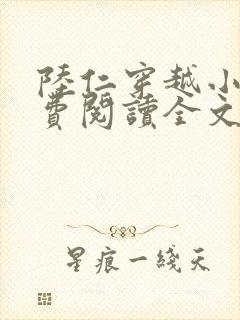 陸仁穿越小
費閱讀全文
星痕一綫天